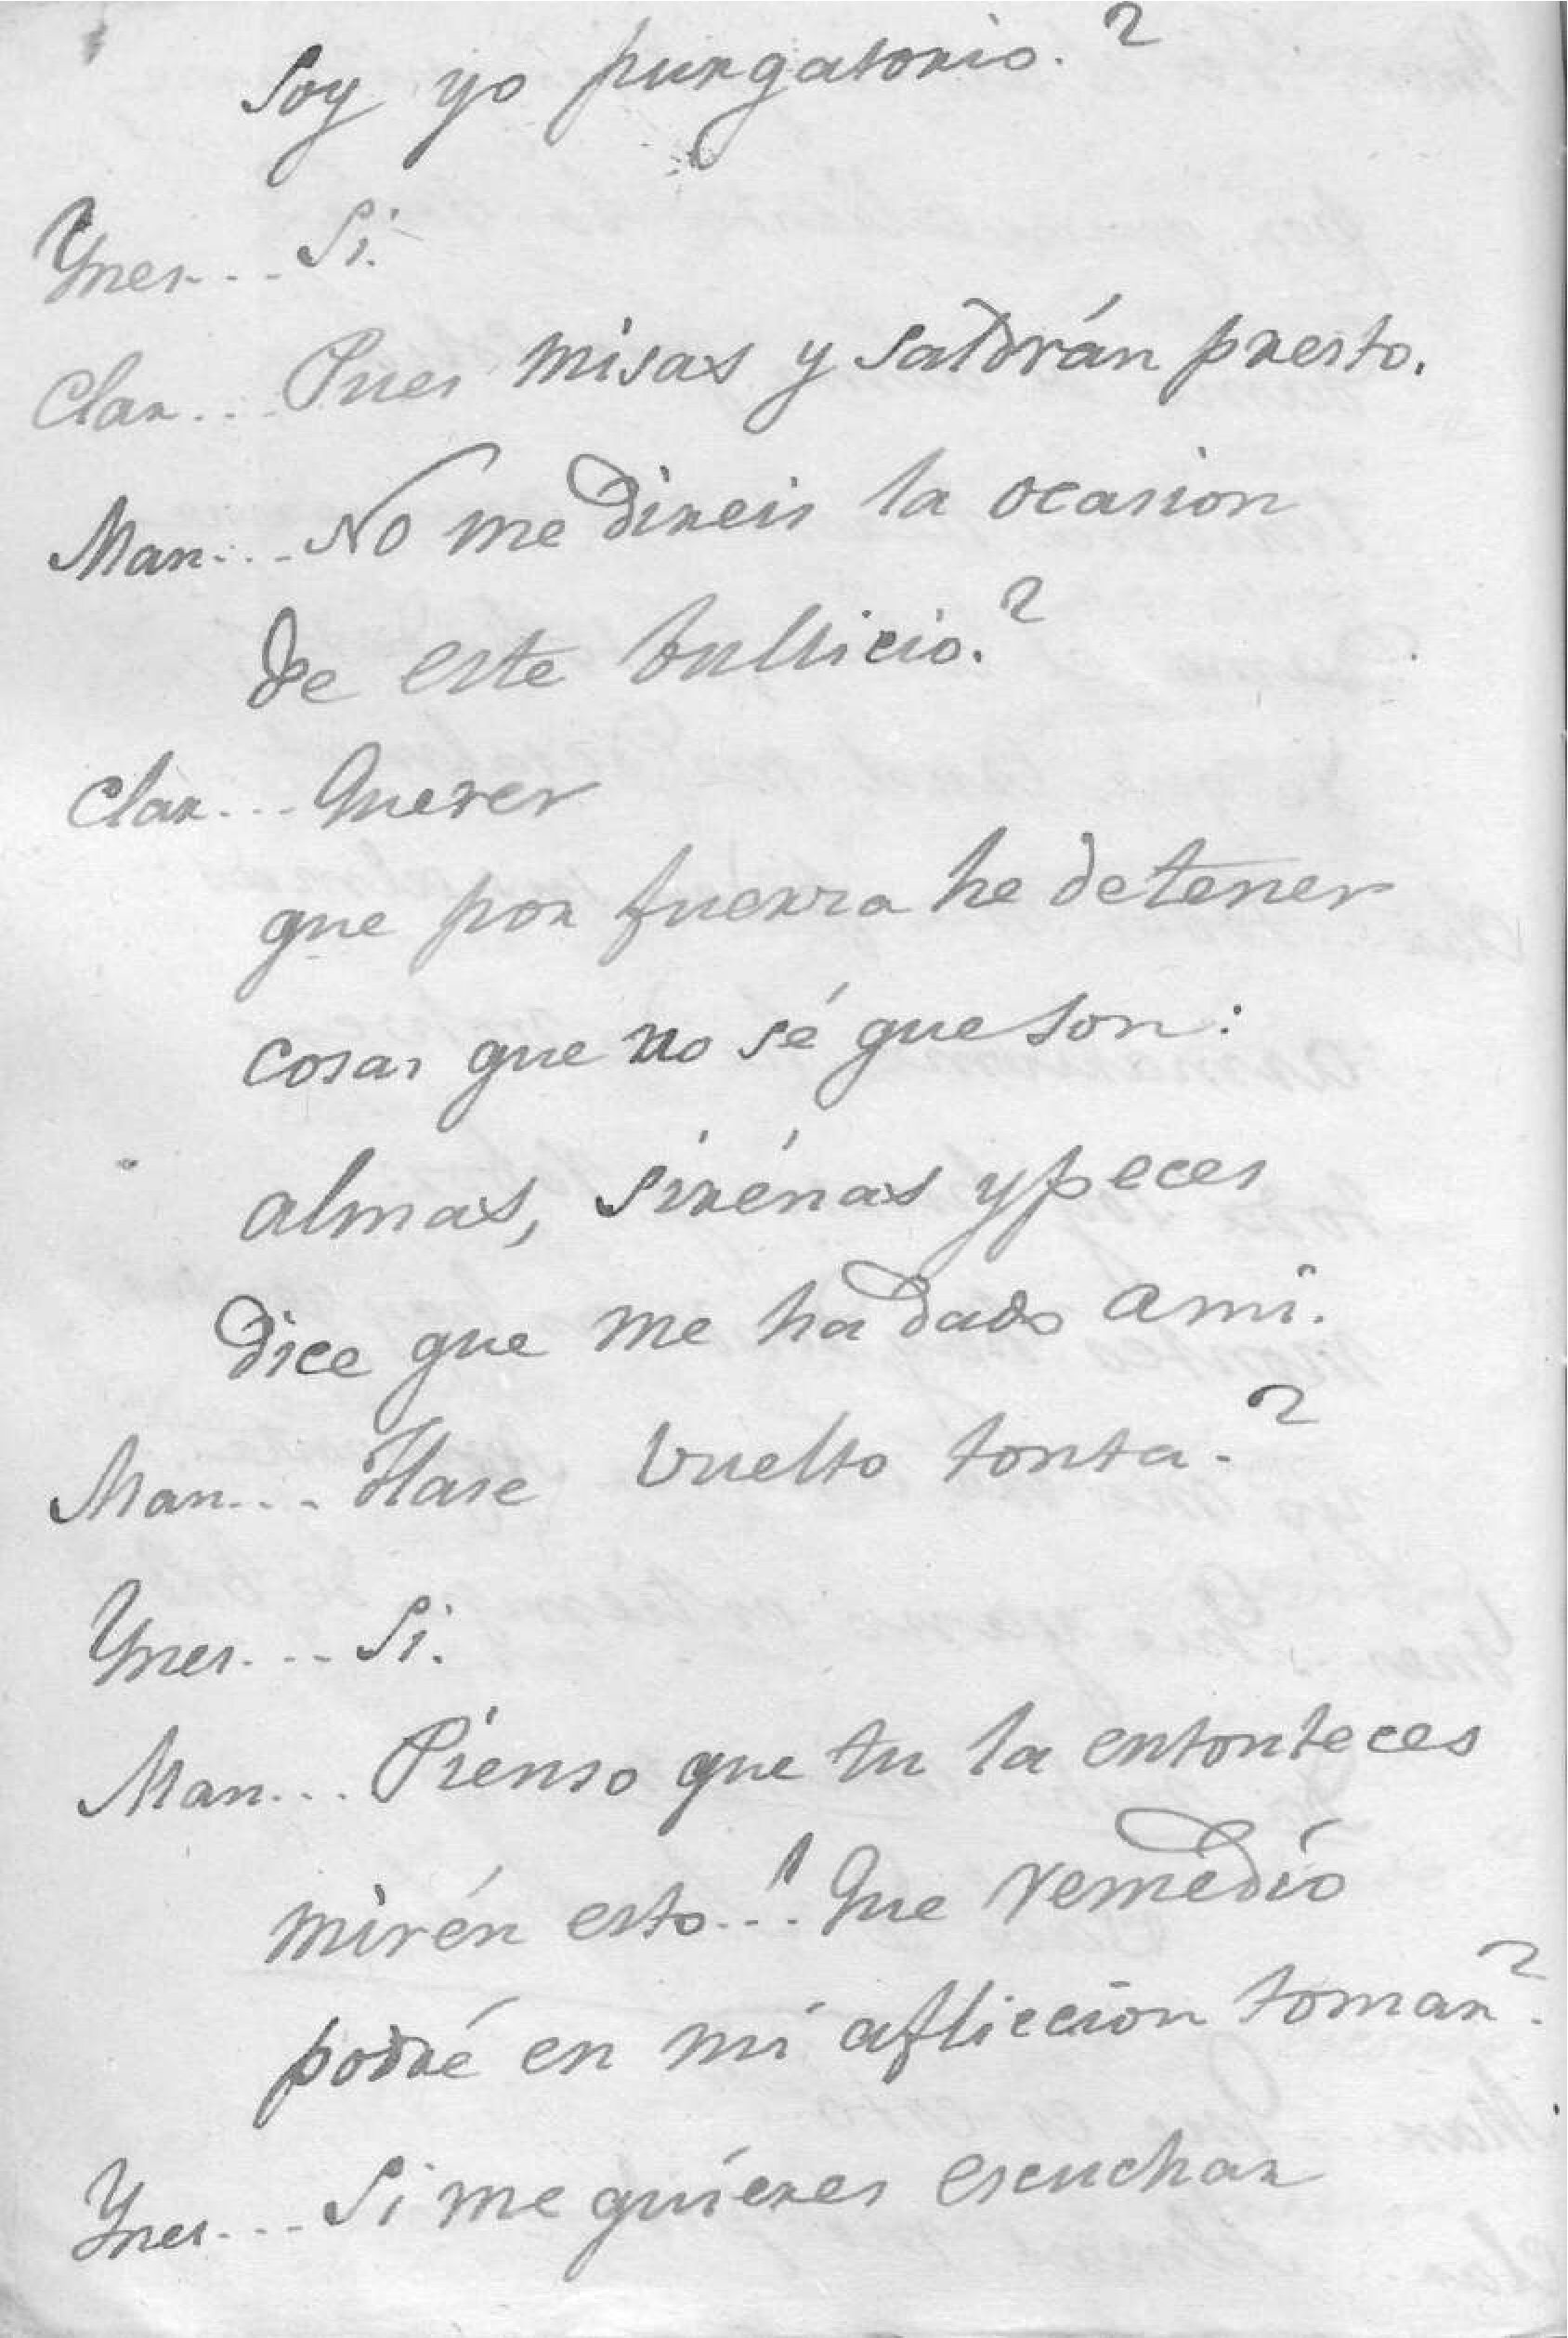 Soy yo purgatorio.?
Ynes... Si.
Clar... Pues misas y saldrán presto.
Mar... No me direis la ocasion
de este bullicio.?
Clar... Querer
que por fuerza he de tener
cosas que no sé que son:
almas, sirénas y peces
dice que me ha dado a mi.
Mar... Hase vuelto tonta.?
Ynes... Si.
Mar... Pienso que tu la entonteces
mirén esto..! Que remedio
podré en mi afliccion tomar?
Ynes... Si me quieres escuchar